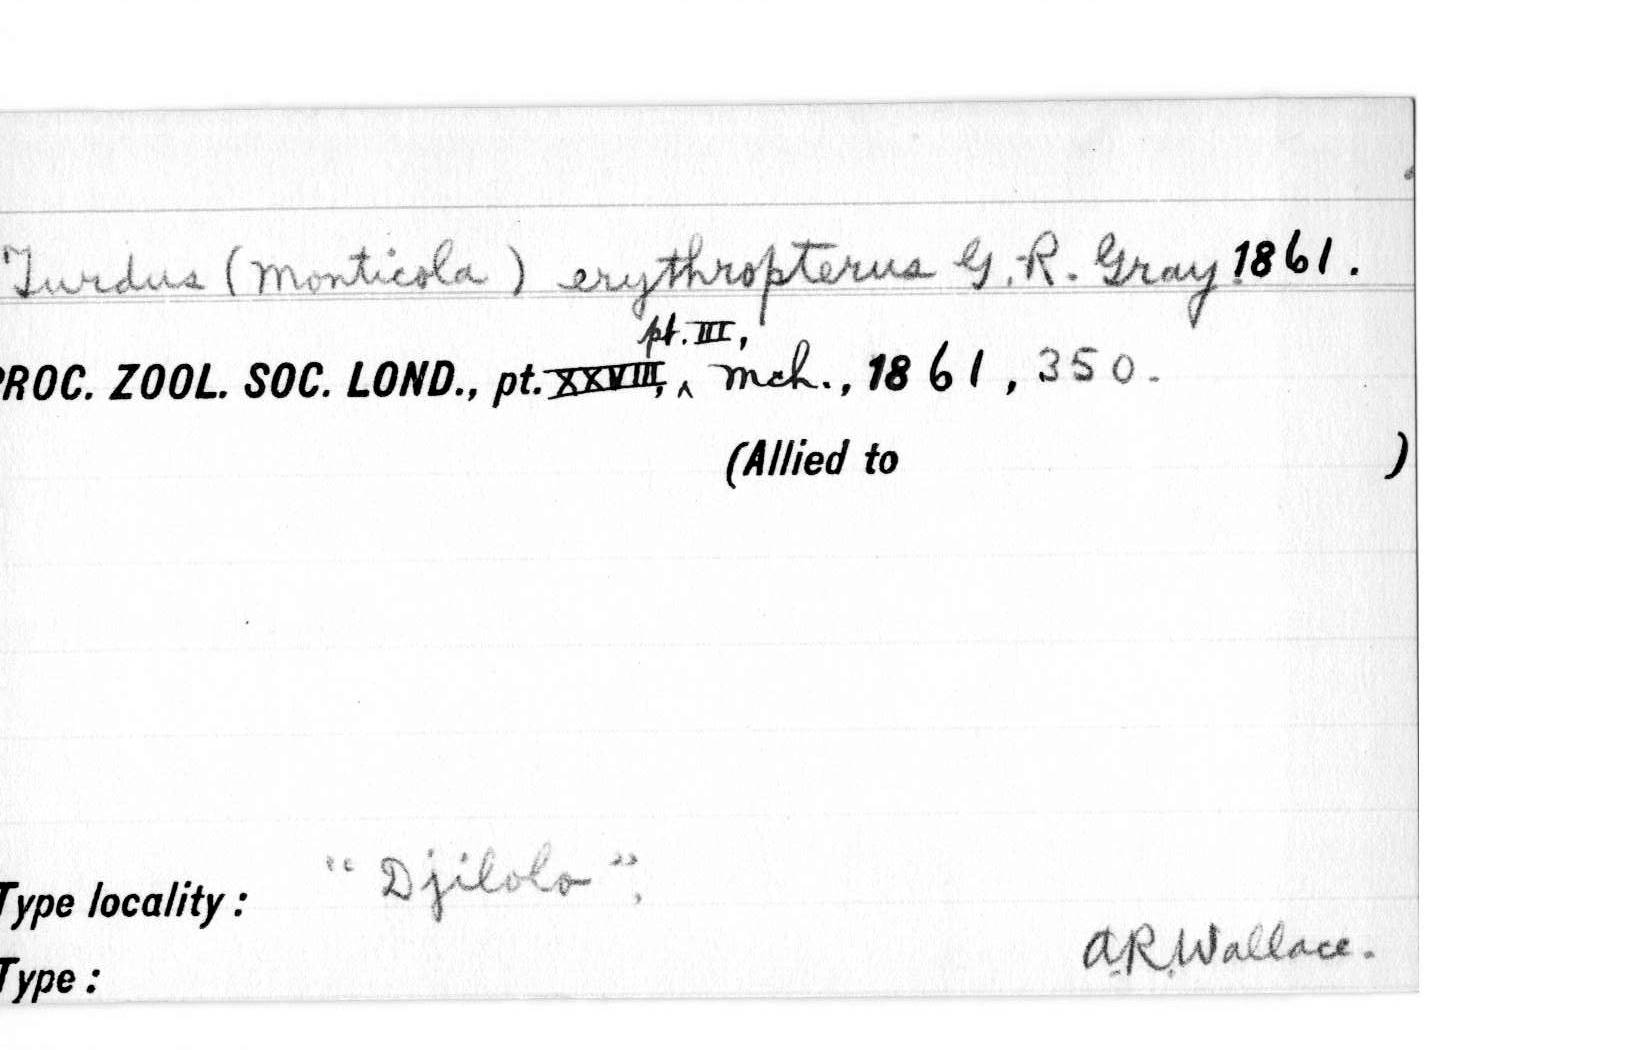 Turdus (Monticola) erythropterus G. R. Gray 1861.
pt. III,
PROC. ZOOL. SOC. LOND., pt. XXVIII, ^ Mch., 1861, 350.
(Allied to )
Type locality: "Djilolo",
A.R. Wallace.
Type: